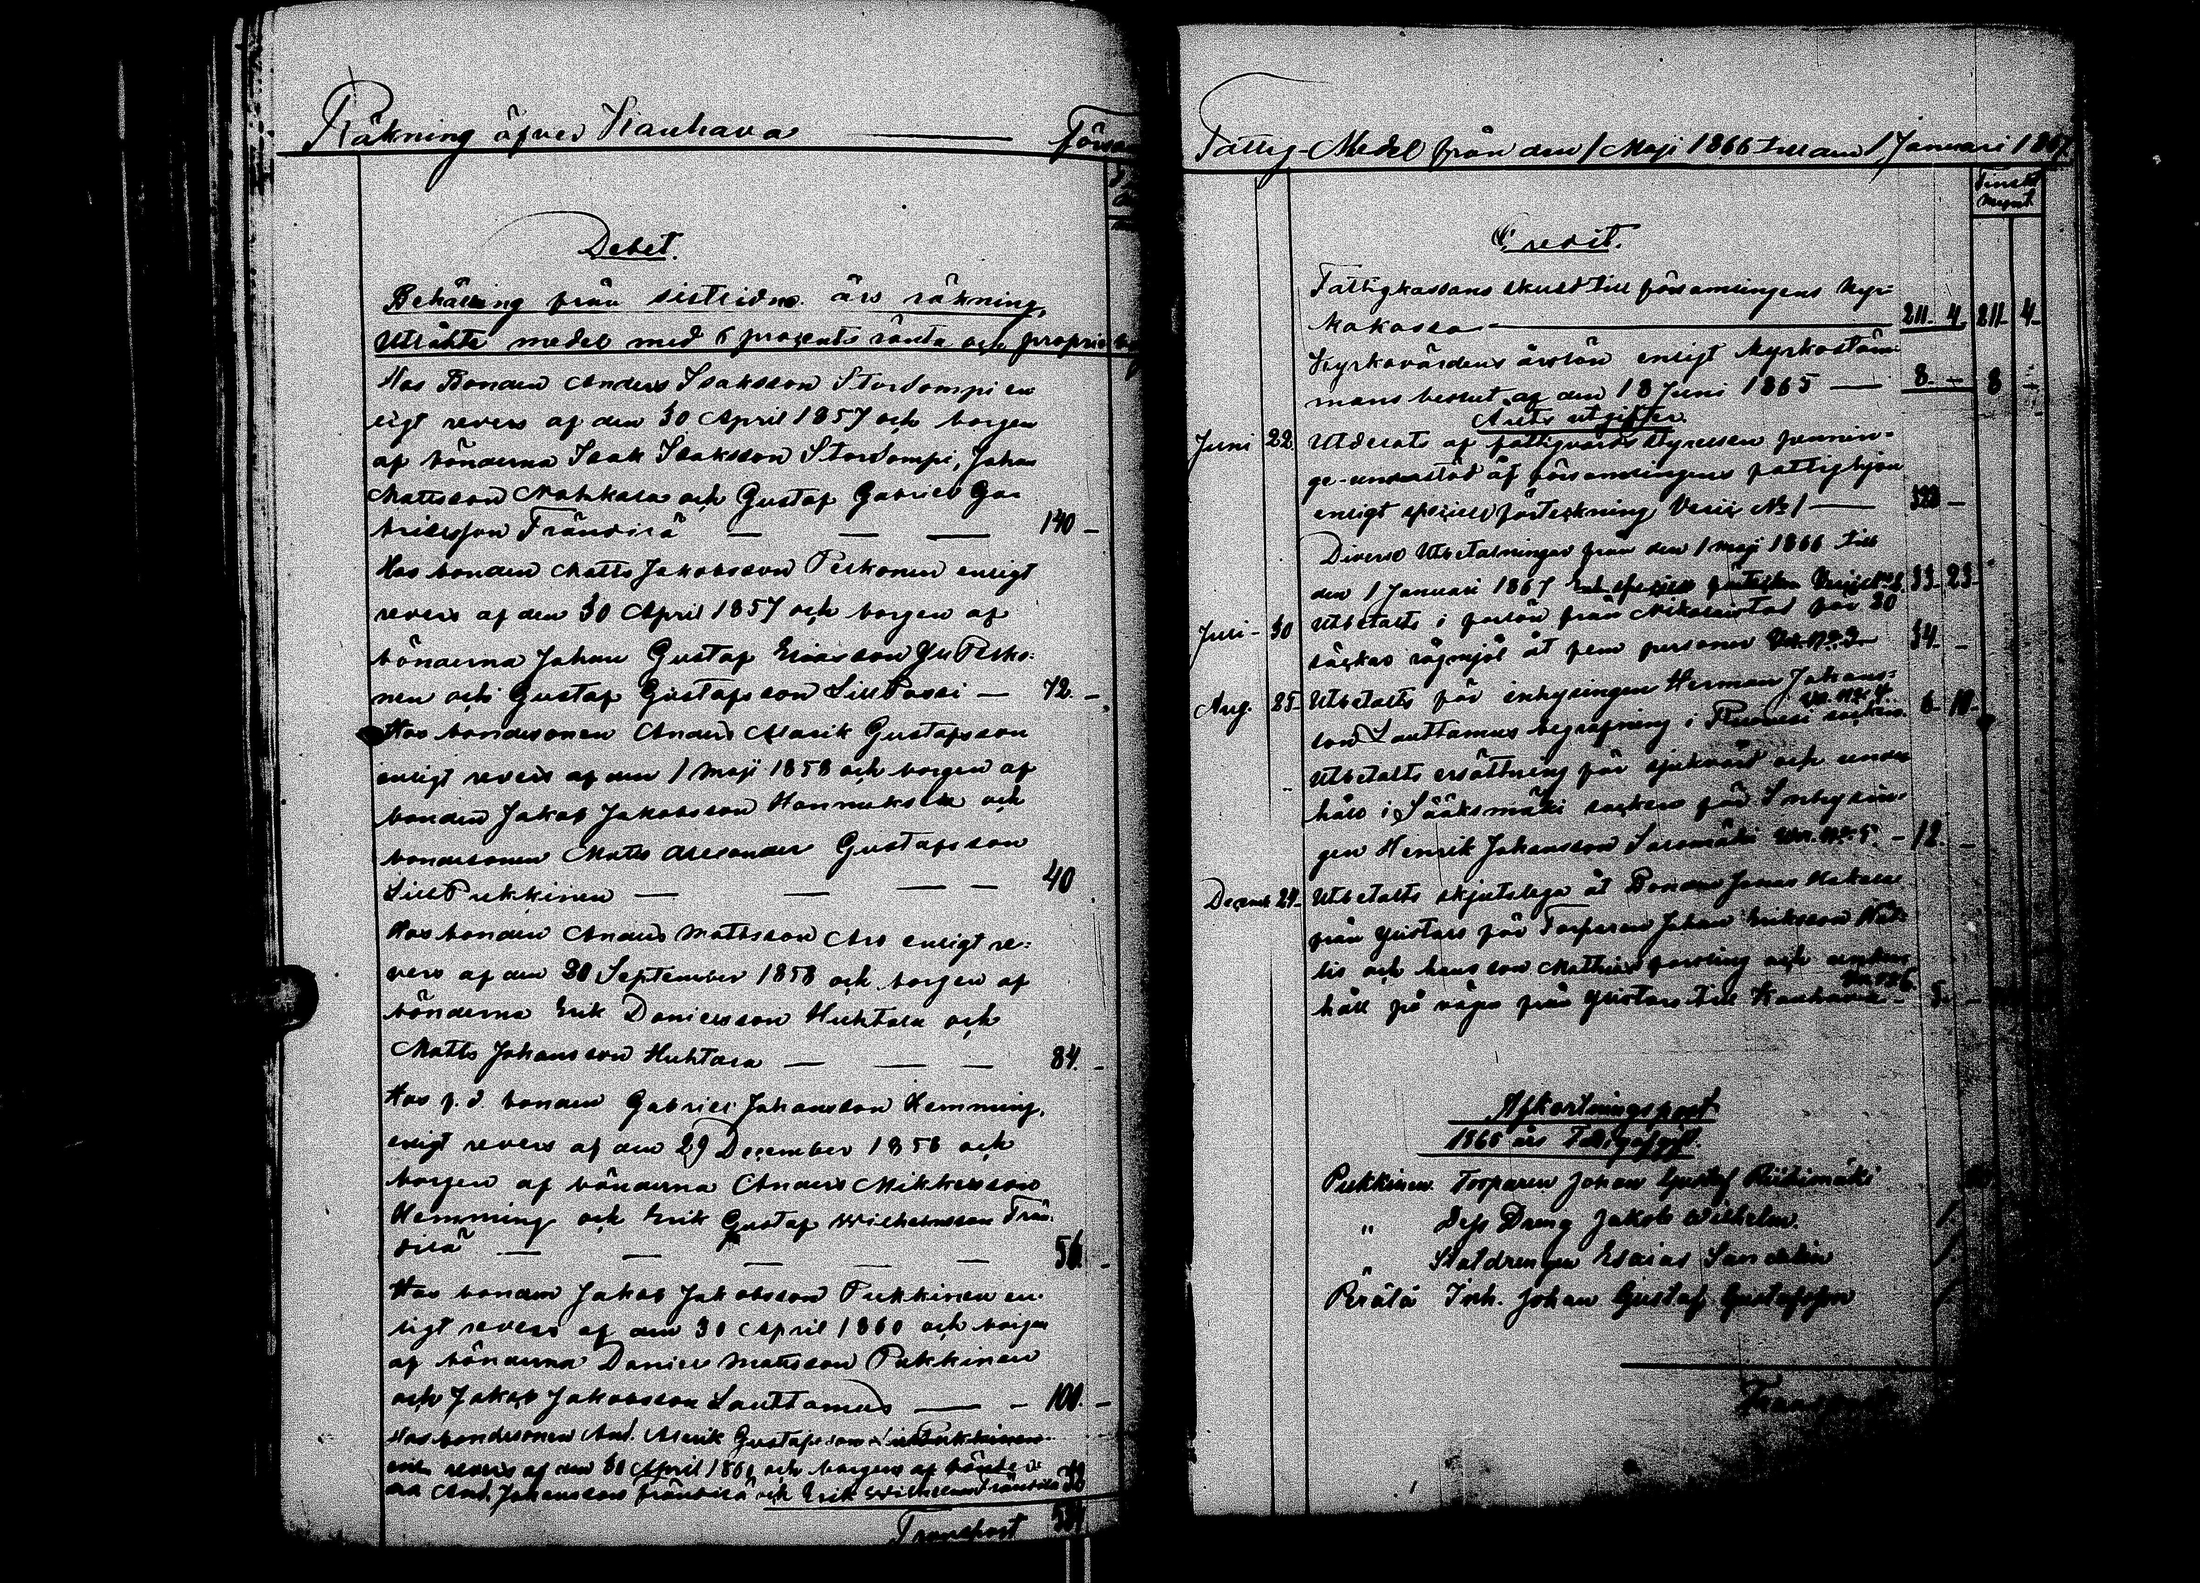 Räkning öfver Kauhava
Debet.
Behållning från sistlidne års räkning,
Utlånte medel med 6 procents ränta och proprie
Hos Bonden Anders Isaksson Stordompi en
ligt revers af den 30 April 1857 och borgen
af bönderna Isak Isaksson Stordompi, Johan
Mattsson och Gustaf Gabriel Ga
brielsson Frändilä — — — 140 –
Hos bonden Matts Jakobsson Peckonen enligt
revers af den 30 April 1857 och borgen af
bönderna Johan Gustaf Eliasson
nen och Gustaf Gustafsson Lill Passi — 72. –
Hos bondesonen Anders Alarik Gustafsson
enligt revers af den 1 Maji 1858 och borgen af
bonden Jakob Jakobsson Hannuksela och
bondesonen Matts Alexander Gustafsson
Lill Pukkinen — — — — 40
Hos bonden Anders Mattsson Ars enligt re:
vers af den 30 September 1858 och borgen af
bönderna Erik Danielsson Huhtala och
Matts Johansson Huhtala — — — 84. –
Hos f.d. bonden Gabriel Johansson Hemming,
enligt revers af den 29 December 1858 och
borgen af bönderna Anders Mikkelsson
Hemming och Erik Gustaf Wilhelmsson Frän
dilä — — — — — 56. –
Hos bonden Jakob Jakobsson Pukkinen en
ligt revers af den 30 April 1860 och borgen
af bönderna Daniel Mattsson Pukkinen
och Jakob Jakobsson Lauttamus — – 100. –
Hos bondesonen And. Alarik Gustafsson Lill Pukkinen
revers af den 30 April 186 och borgen af
And. Johansson Frändilä och Erik Wilhelmsson Frändilä
Transport
Fattig-Medel från den 1 Maji 1866 till den 1 Januari 1867.
Finskt
Mynt.
Credit.
Fattigkassans skuld till församlingens Kyr:
kokassa — 211. 4. 211. 4.
Kyrkovärdens årslön enligt Kyrkostäm
mans beslut af den 18 Juni 1865 — 8. – 8 –
Årets utgifter
Juni 22. Utdelats af fattigvårds styrelsen pennin-
ge-understöd åt församlingens fattighjon
enligt speciel förteckning Verif. No 1 — –
Diverse Utbetalningar från den 1 maji 1866 till
den 1 Januari 1867 Enl. speciel förteckn. 33. 23.
Juli – 30 Utbetalts i forlön från Nikolaistad för 20
säckar rågmjöl åt fem personer Ver. No. 3 — 34. –
Aug. 25. Utbetalts för inhysingen Herman Johans-
son Lauttamus begrafning i socken Ver. No. 4. 6. 10.
Utbetalts ersättning för sjukvård och under
håll i Sääksmäki socken för Inhysin-
gen Henrik Johansson Saromäki Ver. No. 5. – 12. –
Decemb. 24. Utbetalts skjutslega åt Bonden Jonas
från Ylistaro för Torparen Johan Eriksson
lis och hans son Mathias forsling och under
håll på vägen från Ylistaro till Kauhava Ver. No 6. – 5. –
Afkortningspost
1865 års Fattigafgift.
Pukkinen Torparen Johan Gustaf Riihimäki
" Dess Dreng Jakob Wilhelm. 1.
Statdrengen Esaias Sandelin 1.
Pirälä Inh. Johan Gustaf Gustafsson 1.
Transport